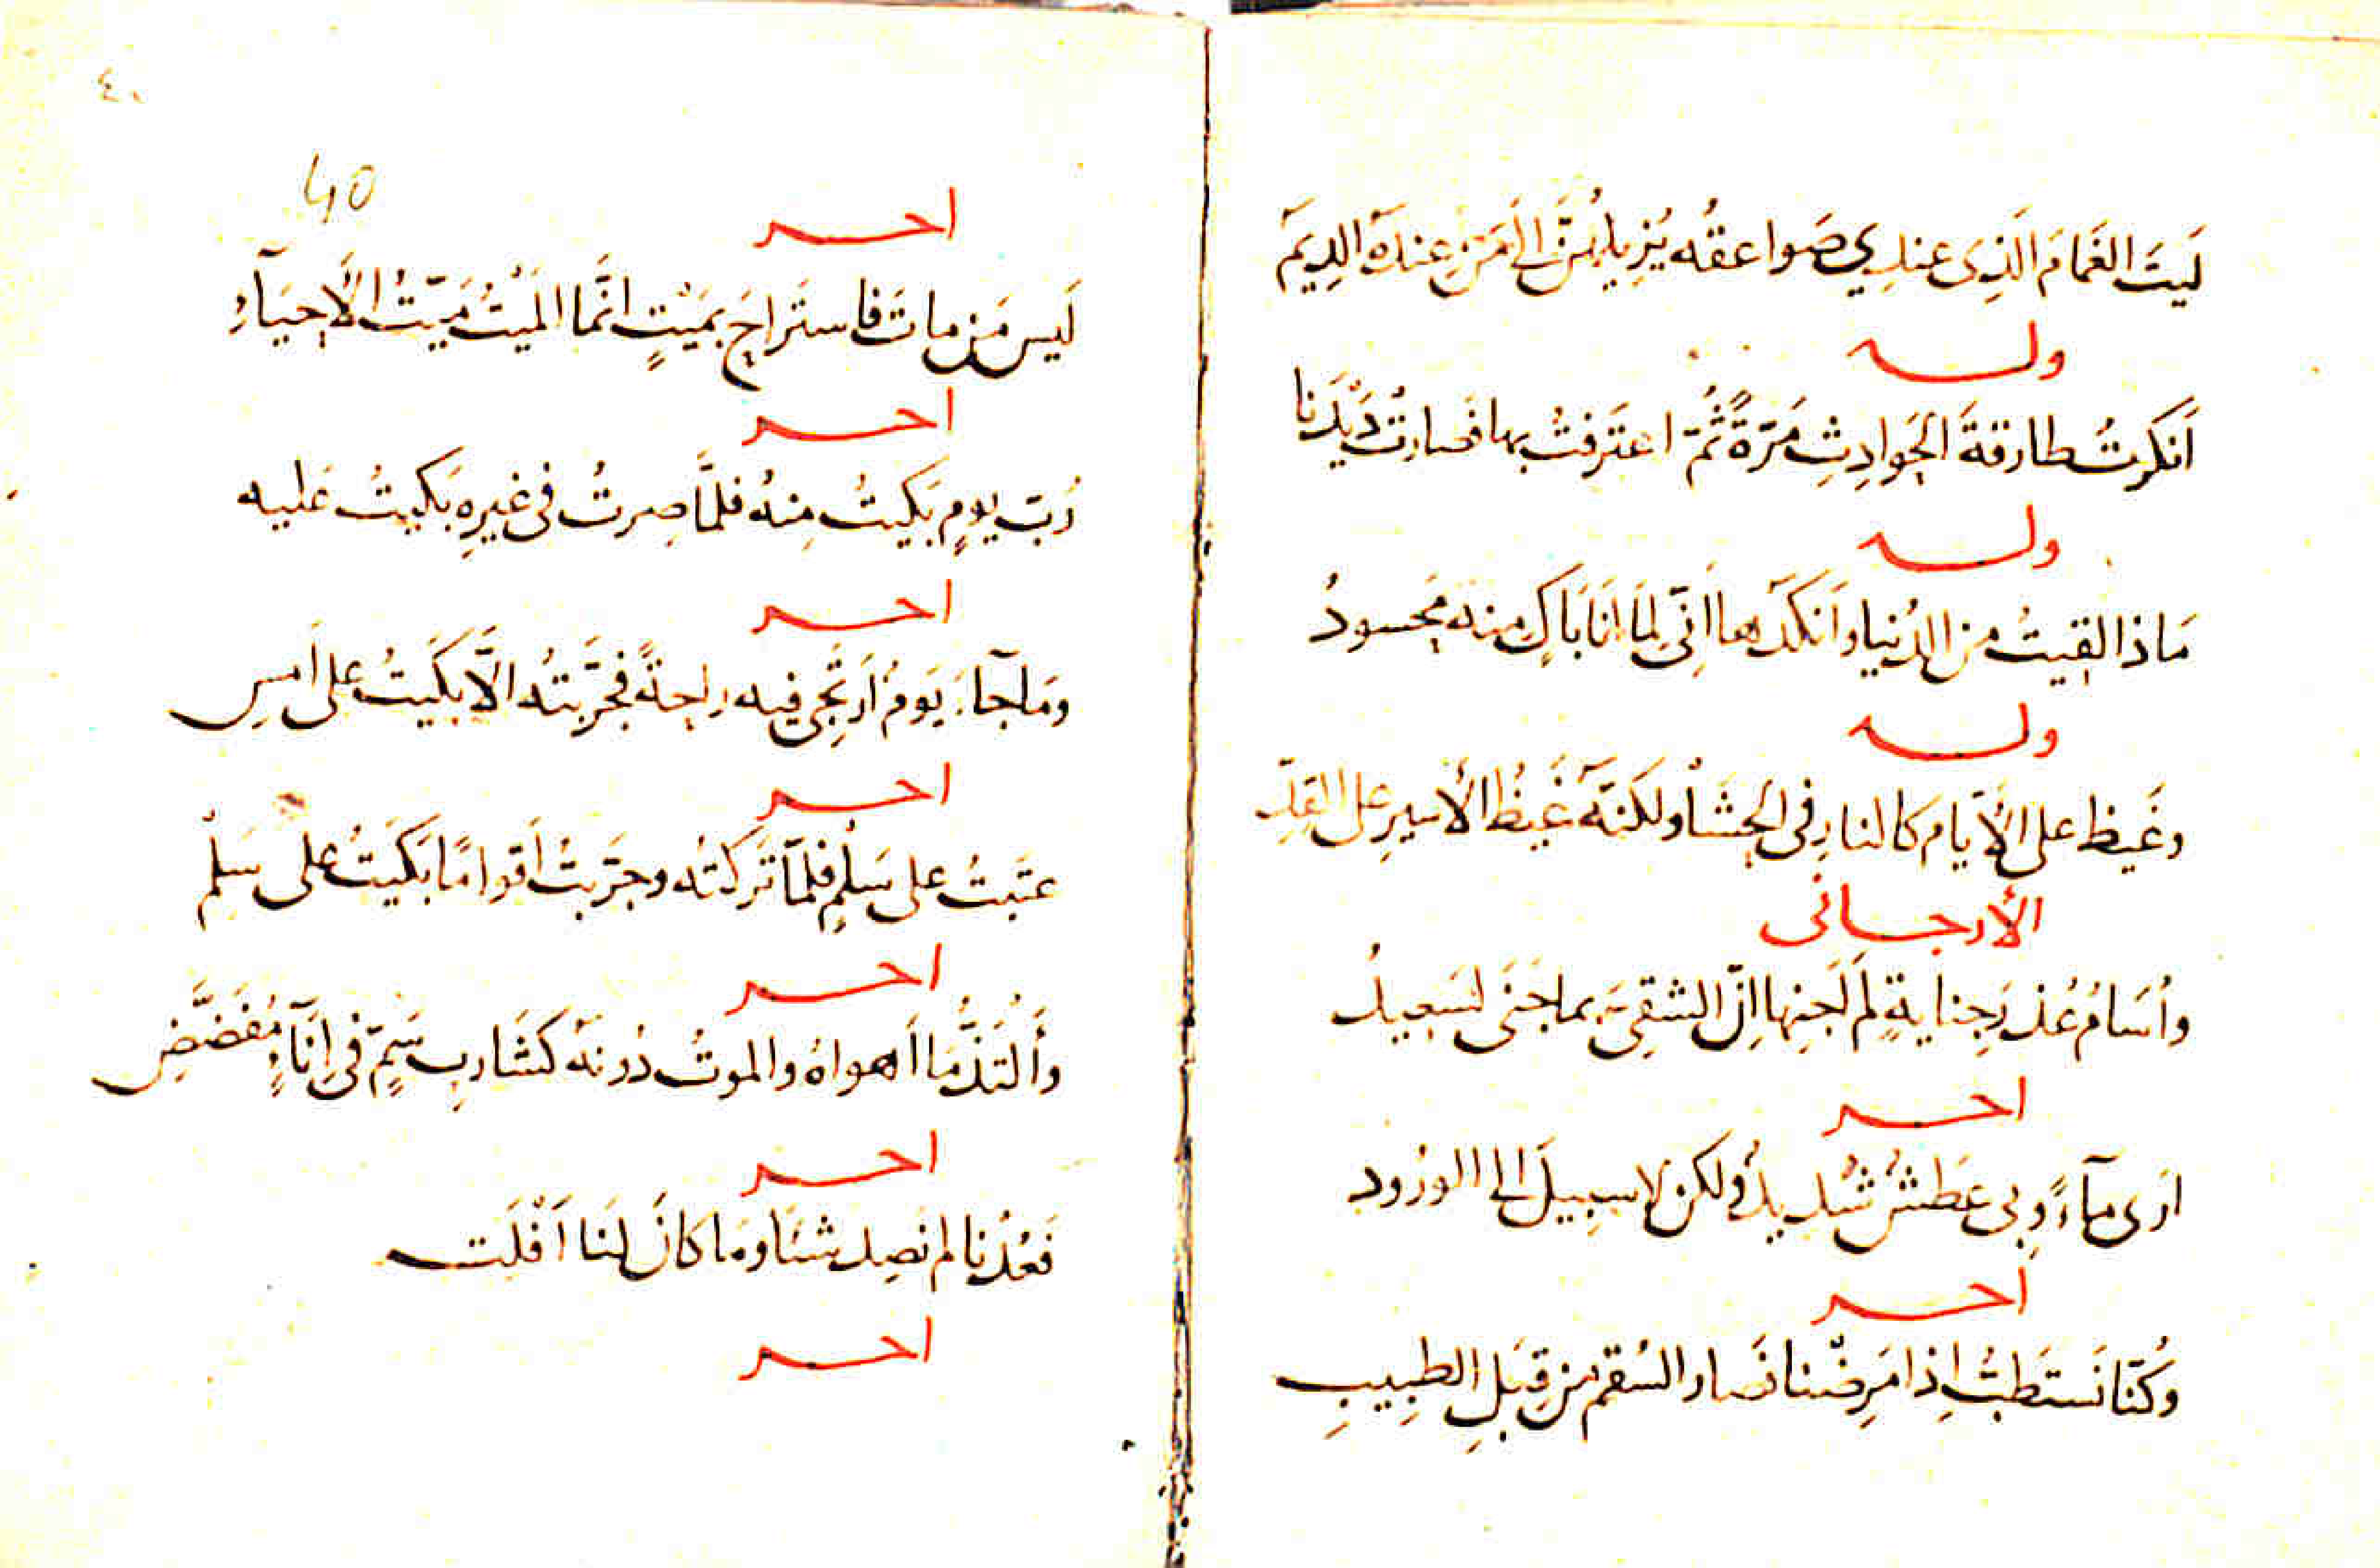 لَيتَ الغَمَامَ الَّذِى عندِي صَواعقُه يُزِيلُهُنَّ الَى مَن عِندَهُ الدِيَم
وله
اَنكرتُ طارقةَ الحَوادِثِ مَرّةً ثُمّ اعتَرفتُ بها فصارتْ دَيْدَنا
وله
مَاذا لقيتُ من الدُنيا واَنكَدُها اَنّى لِمَا اَنَا بَاكٍ منه مَحسودُ
وله
وغَيظ على الأيّام كالنارِ فى الحَشَا ولكنّهُ غَيظُ الأسيرِ على القِدِّ
الأرجانى
واُسَامُ عُذرَ جِنايةٍ لَم اَجنِها اِنّ الشقِىَّ بما جَنَى لسَعِيدُ
اخر
ارَى مآءً وبى عَطَشٌ شَديدٌ ولكن لا سبيلَ الى الوُرُود
اخر
وكُنّا نَستَطِبُّ اِذا مَرِضْنا فصار السُقمُ مِن قِبَلِ الطبِيبِ
٤٠
40
اخر
لَيس مَن ماتَ فاستَراحَ بمَيْتٍ انَّما المَيْتُ مَيّتُ الأَحيَآءِ
اخر
رُبّ يومٍ بَكَيتُ مِنهُ فلمّا صِرتُ فى غيرِهِ بَكيتُ عَليه
اخر
ومَا جآءَ يَومٌ اَرتَجِى فيه راحةً فجَرَّبتُه الّا بَكَيتُ على اَمسِ
اخر
عتَبتُ على سَلْمٍ فلمّا تَركتُه وجَرّبتُ اَقوامًا بَكَيتُ على سَلْم
اخر
وأَلْتَذُّ مَا اَهواهُ والموتُ دُونَه كَشَاربِ سَمٍّ فى اِنَآءٍ مُفَضَّضِ
اخر
فَعُدْنا لم نَصِد شيئا ومَا كانَ لنَا اَفْلَت
اخر